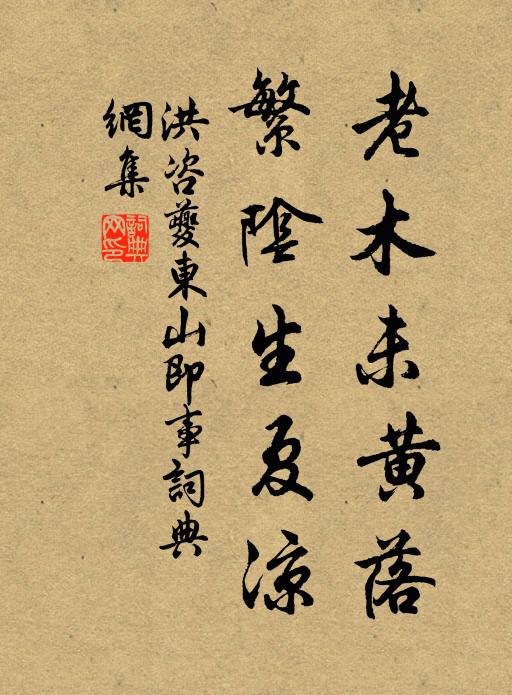 老木未黄落
繁陰生夏涼
洪咨夔東山即事詞典
網集
詞典網印